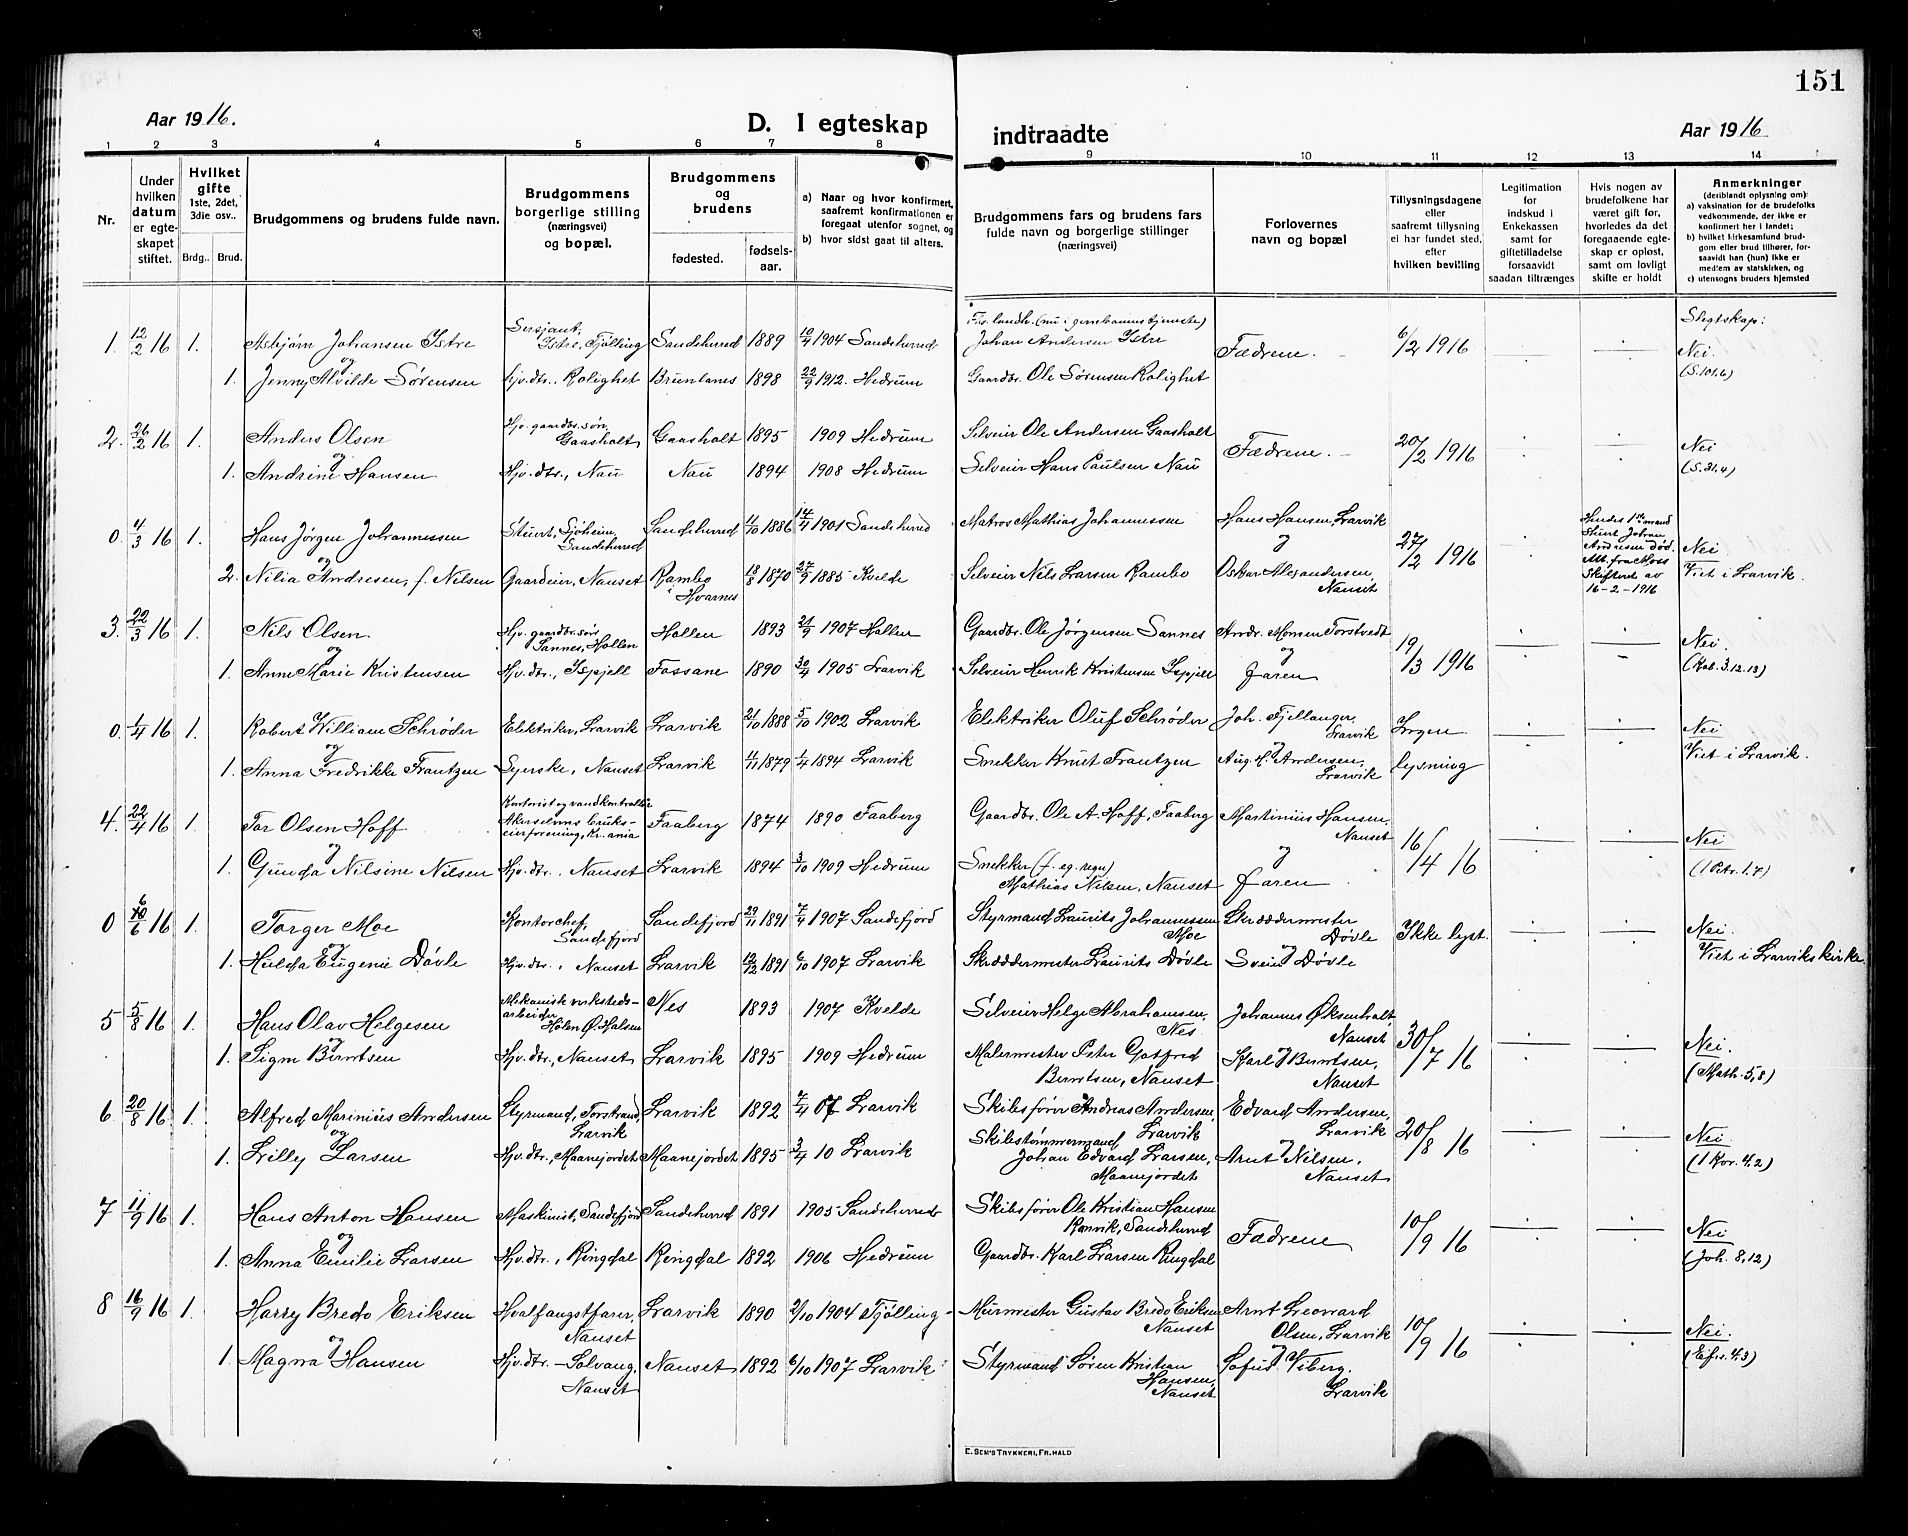 151
Aar 1916.
D. I egteskap indtraadte
Aar 1916
1 2 3 4 5 6 7 8 9 10 11 12 13 14
Nr.
Under hvilken datum er egteskapet stiftet.
Hvilket gifte 1ste, 2det, 3die osv..
Brdg.. Brud.
Brudgommens og brudens fulde navn.
Brudgommens borgerlige stilling (næringsvei) og bopæl.
Brudgommens og brudens
fødested. fødsels-aar.
a) Naar og hvor konfirmert, saafremt konfirmationen er foregaat utenfor sognet, og
b) hvor sidst gaat til alters.
Brudgommens fars og brudens fars fulde navn og borgerlige stillinger (næringsvei)
Forlovernes navn og bopæl
Tillysningsdagene eller saafremt tillysning ei har fundet sted, efter hvilken bevilling
Legitimation for indskud i Enkekassen samt for giftetilladelse forsaavidt saadan tiltrænges
Hvis nogen av brudefolkene har været gift før, hvorledes da det foregaaende egteskap er opløst, samt om lovligt skifte er holdt
Anmerkninger (deriblandt oplysning om)
a) vaksination for de brudefolks vedkommende, der ikke er konfirmert her i landet;
b) hvilket kirkesamfund brudgom eller brud tilhører, forsaavidt han (hun) ikke er medlem av statskirken, og
c) utensogns bruders hjemsted
1. 12/2 16 1. Asbjørn Johansen Istre Sersjant, Istre, Tjølling Sandeherred 1889 10/4 1904 Sandeherred Johan Andersen Istre Fædrene. 6/2 1916 Slegtskap: Nei.
og
1. Jenny Alvilde Sørensen Hjv.dtr., Rolighet Brunlanes 1898 22/9 1912. Hedrum Gaardbr. Ole Sørensen Rolighet (S. 101,6)
2. 26/2 16 1. Anders Olsen Hjv. gaardbr.søn, Gaasholt Gaasholt 1895 1909 Hedrum Selveier Ole Andersen Gaasholt Fædrene. 20/2 1916 Nei
og
1. Andrine Hansen Hjv.dtr., Nau Nau 1894 1908 Hedrum Selveier Hans Paulsen Nau (S. 31,4)
0. 4/3 16 1. Hans Jørgen Johannessen Stuert, Sjøheim, Sandeherred Sandeherred 11/10 1886 14/4 1901 Sandeherred Matros Mathias Johannessen Hans Hansen, Larvik 27/2 1916 Hendes 1ste mand Stuert Johan Andresen død. Att. fra Moss Skifteret av 16-2-1916 Nei
og
2. Nilia Andresen, f. Nilsen Gaardeier, Nanset Rambo i Hvarnes 18/8 1870 27/9 1885 Kvelde Selveier Nils Larsen Rambo Oskar Alexandersen, Nanset Viet i Larvik.
3. 22/3 16 1. Nils Olsen. Hjv. gaardbr.søn Sannes, Hollen Hollen 1893 21/9 1907 Hollen Gaardbr. Ole Jørgensen Sannes Andr. Monsen Torstvedt 19/3 1916 Nei
og
1. Anne Marie Kristensen Hjv.dtr., Ispjell Fossane 1890 30/4 1905 Larvik Selveier Henrik Kristensen Ispjell og Faren (Kol. 3.12.13)
0. 1/4 16 1. Robert William Schrøder Elektriker, Larvik Larvik 21/10 1888 5/10 1902 Larvik Elektriker Oluf Schrøder Joh. Fjellanger, Larvik Ingen Nei
og
1. Anna Fredrikke Frantzen Syerske, Nanset Larvik 4/11 1879 1/4 1894 Larvik Snekker Knut Frantzen Aug. H. Andersen, Larvik lysning Viet i Larvik.
4. 22/4 16 1. Tor Olsen Hoff Kontorist og vandkontrollør Akerselvens bruks-eierforening, Kr.ania Faaberg 1874 1890 Faaberg Gaardbr. Ole A. Hoff, Faaberg Martinius Hansen, Nanset 16/4 16 Nei
og
1. Gunda Nilsine Nilsen Hjv.dtr., Nanset Larvik 1894 3/10 1909 Hedrum Snekker (f. eg. regn) Mathias Nilsen, Nanset og Faren (1 Petr. 1.7)
0 6/6 16 1. Torger Moe Kontorchef, Sandefjord Sandefjord 29/11 1891 7/4 1907 Sandefjord Styrmand Laurits Johannessen Moe Skræddermester Døvle Ikke lyst. Nei.
og
1. Hulda Eugenie Døvle Hjv.dtr., Nanset Larvik 12/12 1891 6/10 1907 Larvik Skræddermester Laurits Døvle Svein Døvle Viet i Larviks kirke.
5 5/8 16 1. Hans Olav Helgesen Mekanisk verksteds-arbeider Holen Ø. Halsen Nes 1893 1907 Kvelde Selveier Helge Abrahamsen, Nes. Johannes Øksenholt, Nanset 30/7 16 Nei.
og
1. Signe Berntsen Hjv.dtr., Nanset Larvik 1895 1909 Hedrum Malermester Peter Gotfred Berntsen, Nanset Karl Berntsen, Nanset (Math. 5,8)
6 20/8 16 1. Alfred Marinius Andersen Styrmand, Torstrand, Larvik Larvik 1892 7/4 07 Larvik Skibsfører Andreas Andersen, Larvik Edvard Andersen, Larvik 20/8 16 Nei
og
1. Lilly Larsen Hjv.dtr., Maanejordet Maanejordet 1895 3/4 10 Larvik Skibstømmermand Johan Edvard Larsen, Maanejordet Arnt Nilsen, Nanset (1 Kor. 4.2)
7 11/9 16 1. Hans Anton Hansen Maskinist, Sandefjord Sandeherred 1891 1905 Sandeherred Skibsfører Ole Kristian Hansen Ranvik, Sandeherred Fædrene 10/9 16 Nei
og
1. Anna Emilie Larsen Hjv.dtr., Ringdal Ringdal 1892 1906 Hedrum Gaardbr. Karl Larsen Ringdal (Joh. 8,12)
8 16/9 16 1. Harry Bredo Eriksen Hvalfangstfarer, Nanset Larvik 1890 2/10 1904 Tjølling Murmester Gustav Bredo Eriksen Nanset Arnt Leonard Olsen, Larvik 10/9 16 Nei.
og
1. Magna Hansen Hjv.dtr. - Solvang, Nanset Nanset 1892 6/10 1907 Larvik Styrmand Søren Kristian Hansen, Nanset Sofus Viberg, Larvik (Efes. 4,3)
E. SEM'S TRYKKERI, FR.HALD